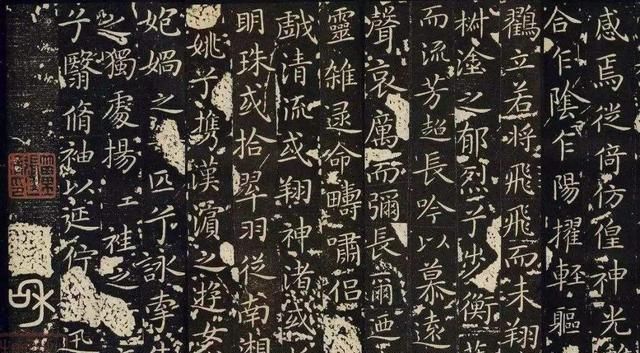 感焉徙倚仿偟神光
合乍陰乍陽擢輕軀
鸛立若將飛飛而未翔
塗之郁烈兮步衡
而流芳超長吟以慕遠
聲哀厲而彌長爾迺
靈雜遝命疇嘯侶
戲清流或翔神渚或
明珠或拾翠羽從南湘
姚兮攜漢濱之遊女
媧之匹兮詠牽
之獨處揚袿之
兮翳脩袖以延佇迅